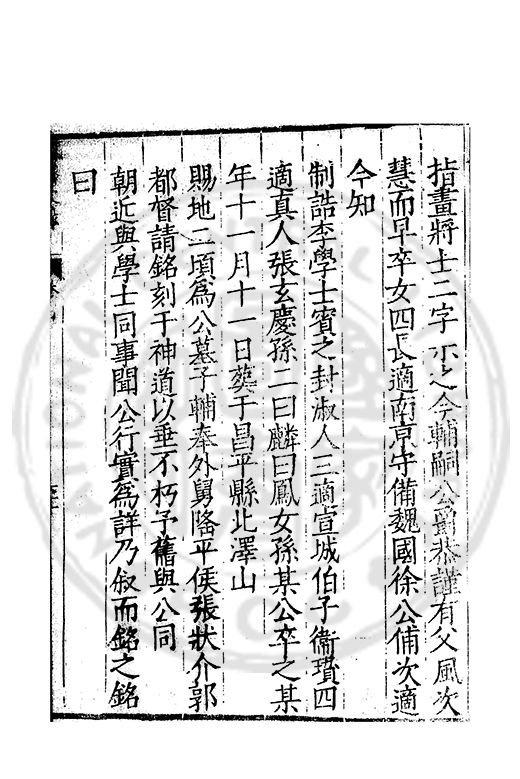 指畫將士二字示之今輔嗣公爵恭謹有父風次
慧而早卒女四長適南京守備魏國徐公俌次適
今知
制誥李學士賓之封淑人三適宣城伯子衛璜四
適真人張玄慶孫二曰麟曰鳳女孫某公卒之某
年十一月十一日葬于昌平縣北澤山
賜地二頃為公墓子輔奉外舅隆平侯張狀介郭
都督請銘刻于神道以垂不朽予舊與公同
朝近與學士同事聞公行實為詳乃叙而銘之銘
曰